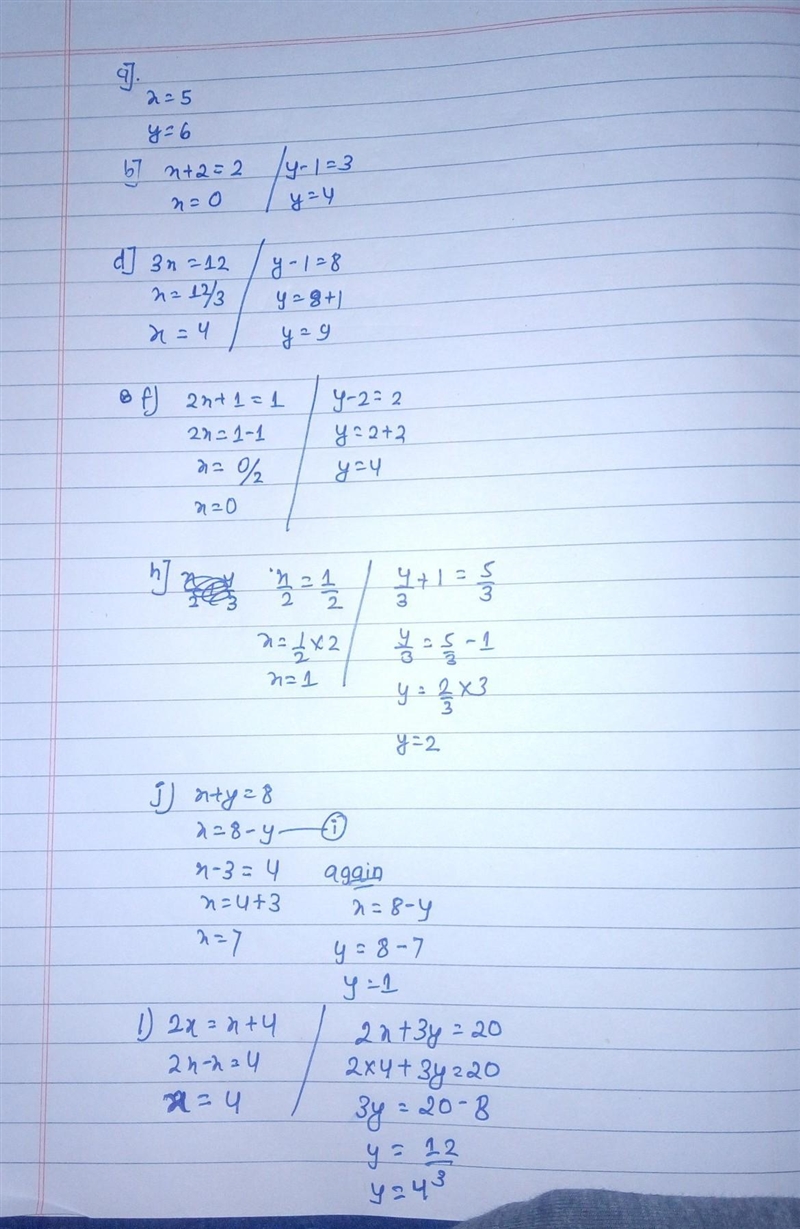 a].
x=5
y=6
b] x+2=2 / y-1=3
x=0 y=4
d] 3x=12 / y-1=8
x=12/3 y=8+1
x=4 y=9
f) 2x+1=1 / y-2=2
2x=1-1 y=2+2
x=0/2 y=4
x=0
h] x/2=1/2 / y/3+1=5/3
x=1/2×2 y/3=5/3-1
x=1 y=2/3×3
y=2
j) x+y=8
x=8-y — (i)
x-3=4 again
x=4+3 x=8-y
x=7 y=8-7
y=1
l) 2x=x+4 / 2x+3y=20
2x-x=4 2×4+3y=20
x=4 3y=20-8
y=12/3
y=4